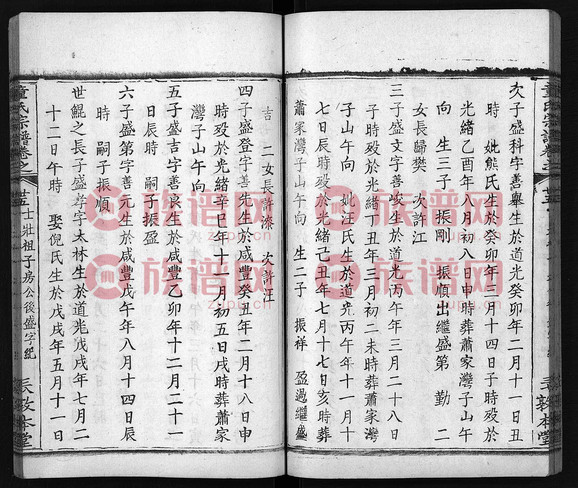 次子盛科字善舉生於道光癸卯年二月十一日丑
時 妣熊氏生於癸卯年三月十四日子時歿於
光緒乙酉年八月初八日申時葬蕭家灣子山午
向 生三子振剛 振順出繼盛第 勤 二
女長歸樊 次許江
三子盛文字善安生於道光丙午年三月二十八日
時歿於光緒丁丑年三月初二未時葬蕭家灣
子山午向 妣汪氏生於道光丙午年十一月十
七日辰時歿於光緒己丑年七月十七日亥時葬
蕭家灣子山午向 生二子 振祥 盈過繼盛
吉 二女長許漆 次許江
四子盛登字善先生於咸豐癸丑年二月十八日申
時歿於光緒辛巳年十一月初五日戌時葬蕭家
灣子山午向
五子盛吉字善良生於咸豐乙卯年十二月二十一
日辰時 嗣子振盈
六子盛第字善元生於咸豐戊午年八月十四日辰
時 嗣子振順
世鯤之長子盛字太林生於道光戊戌年七月二
十二日午時 娶倪氏生於戊戌年五月十一日
童氏宗譜卷之
廿五
士壯祖子房公後盛字紀
天敘本堂
族谱网
zupu.cn